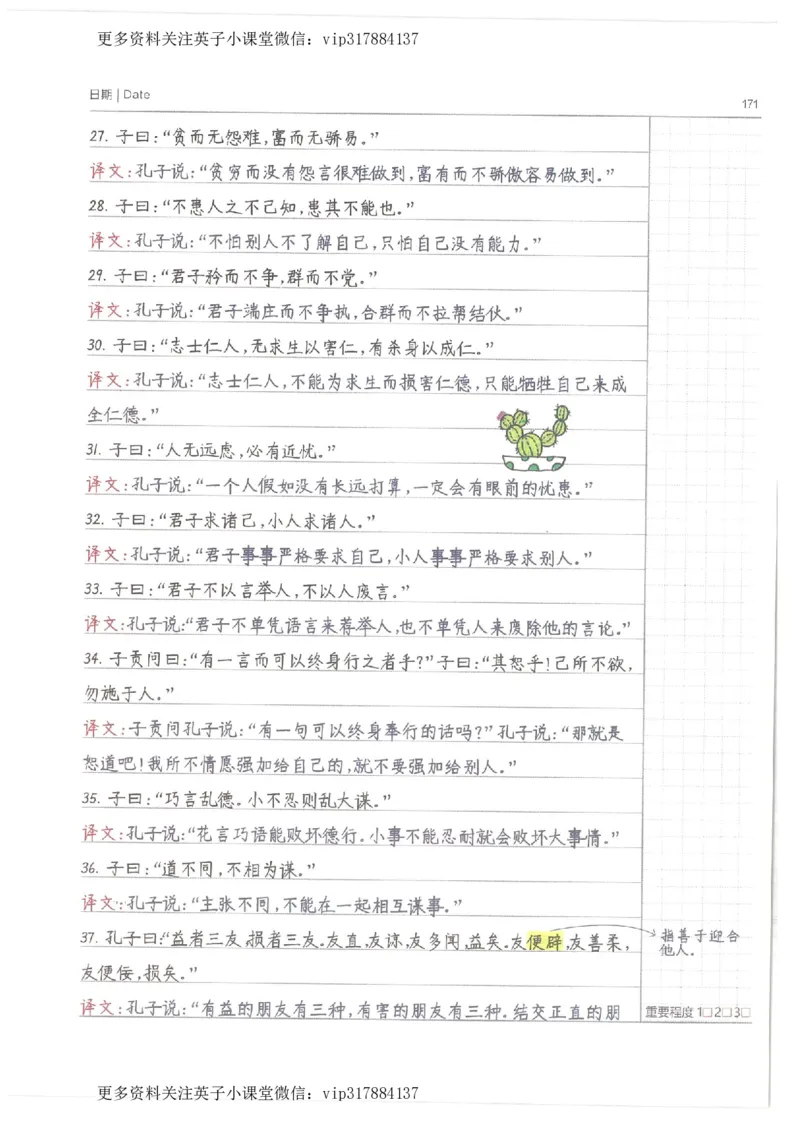 更多资料关注英子小课堂微信：vip317884137
日期 | Date
171
27. 子曰：“贫而无怨难，富而无骄易。”
译文：孔子说：“贫穷而没有怨言很难做到，富有而不骄傲容易做到。”
28. 子曰：“不患人之不己知，患其不能也。”
译文：孔子说：“不怕别人不了解自己，只怕自己没有能力。”
29. 子曰：“君子矜而不争，群而不党。”
译文：孔子说：“君子端庄而不争执，合群而不拉帮结伙。”
30. 子曰：“志士仁人，无求生以害仁，有杀身以成仁。”
译文：孔子说：“志士仁人，不能为求生而损害仁德，只能牺牲自己来成
全仁德。”
31. 子曰：“人无远虑，必有近忧。”
译文：孔子说：“一个人假如没有长远打算，一定会有眼前的忧患。”
32. 子曰：“君子求诸己，小人求诸人。”
译文：孔子说：“君子事事严格要求自己，小人事事严格要求别人。”
33. 子曰：“君子不以言举人，不以人废言。”
译文：孔子说：“君子不单凭语言来荐举人，也不单凭人来废除他的言论。”
34. 子贡问曰：“有一言而可以终身行之者乎？”子曰：“其恕乎！己所不欲，
勿施于人。”
译文：子贡问孔子说：“有一句可以终身奉行的话吗？”孔子说：“那就是
恕道吧！我所不情愿强加给自己的，就不要强加给别人。”
35. 子曰：“巧言乱德。小不忍则乱大谋。”
译文：孔子说：“花言巧语能败坏德行。小事不能忍耐就会败坏大事情。”
36. 子曰：“道不同，不相为谋。”
译文：孔子说：“主张不同，不能在一起相互谋事。”
37. 孔子曰：“益者三友，损者三友。友直，友谅，友多闻，益矣。友便辟，友善柔，
指善于迎合
他人。
友便佞，损矣。”
译文：孔子说：“有益的朋友有三种，有害的朋友有三种。结交正直的朋
重要程度 1□2□3□
更多资料关注英子小课堂微信：vip317884137